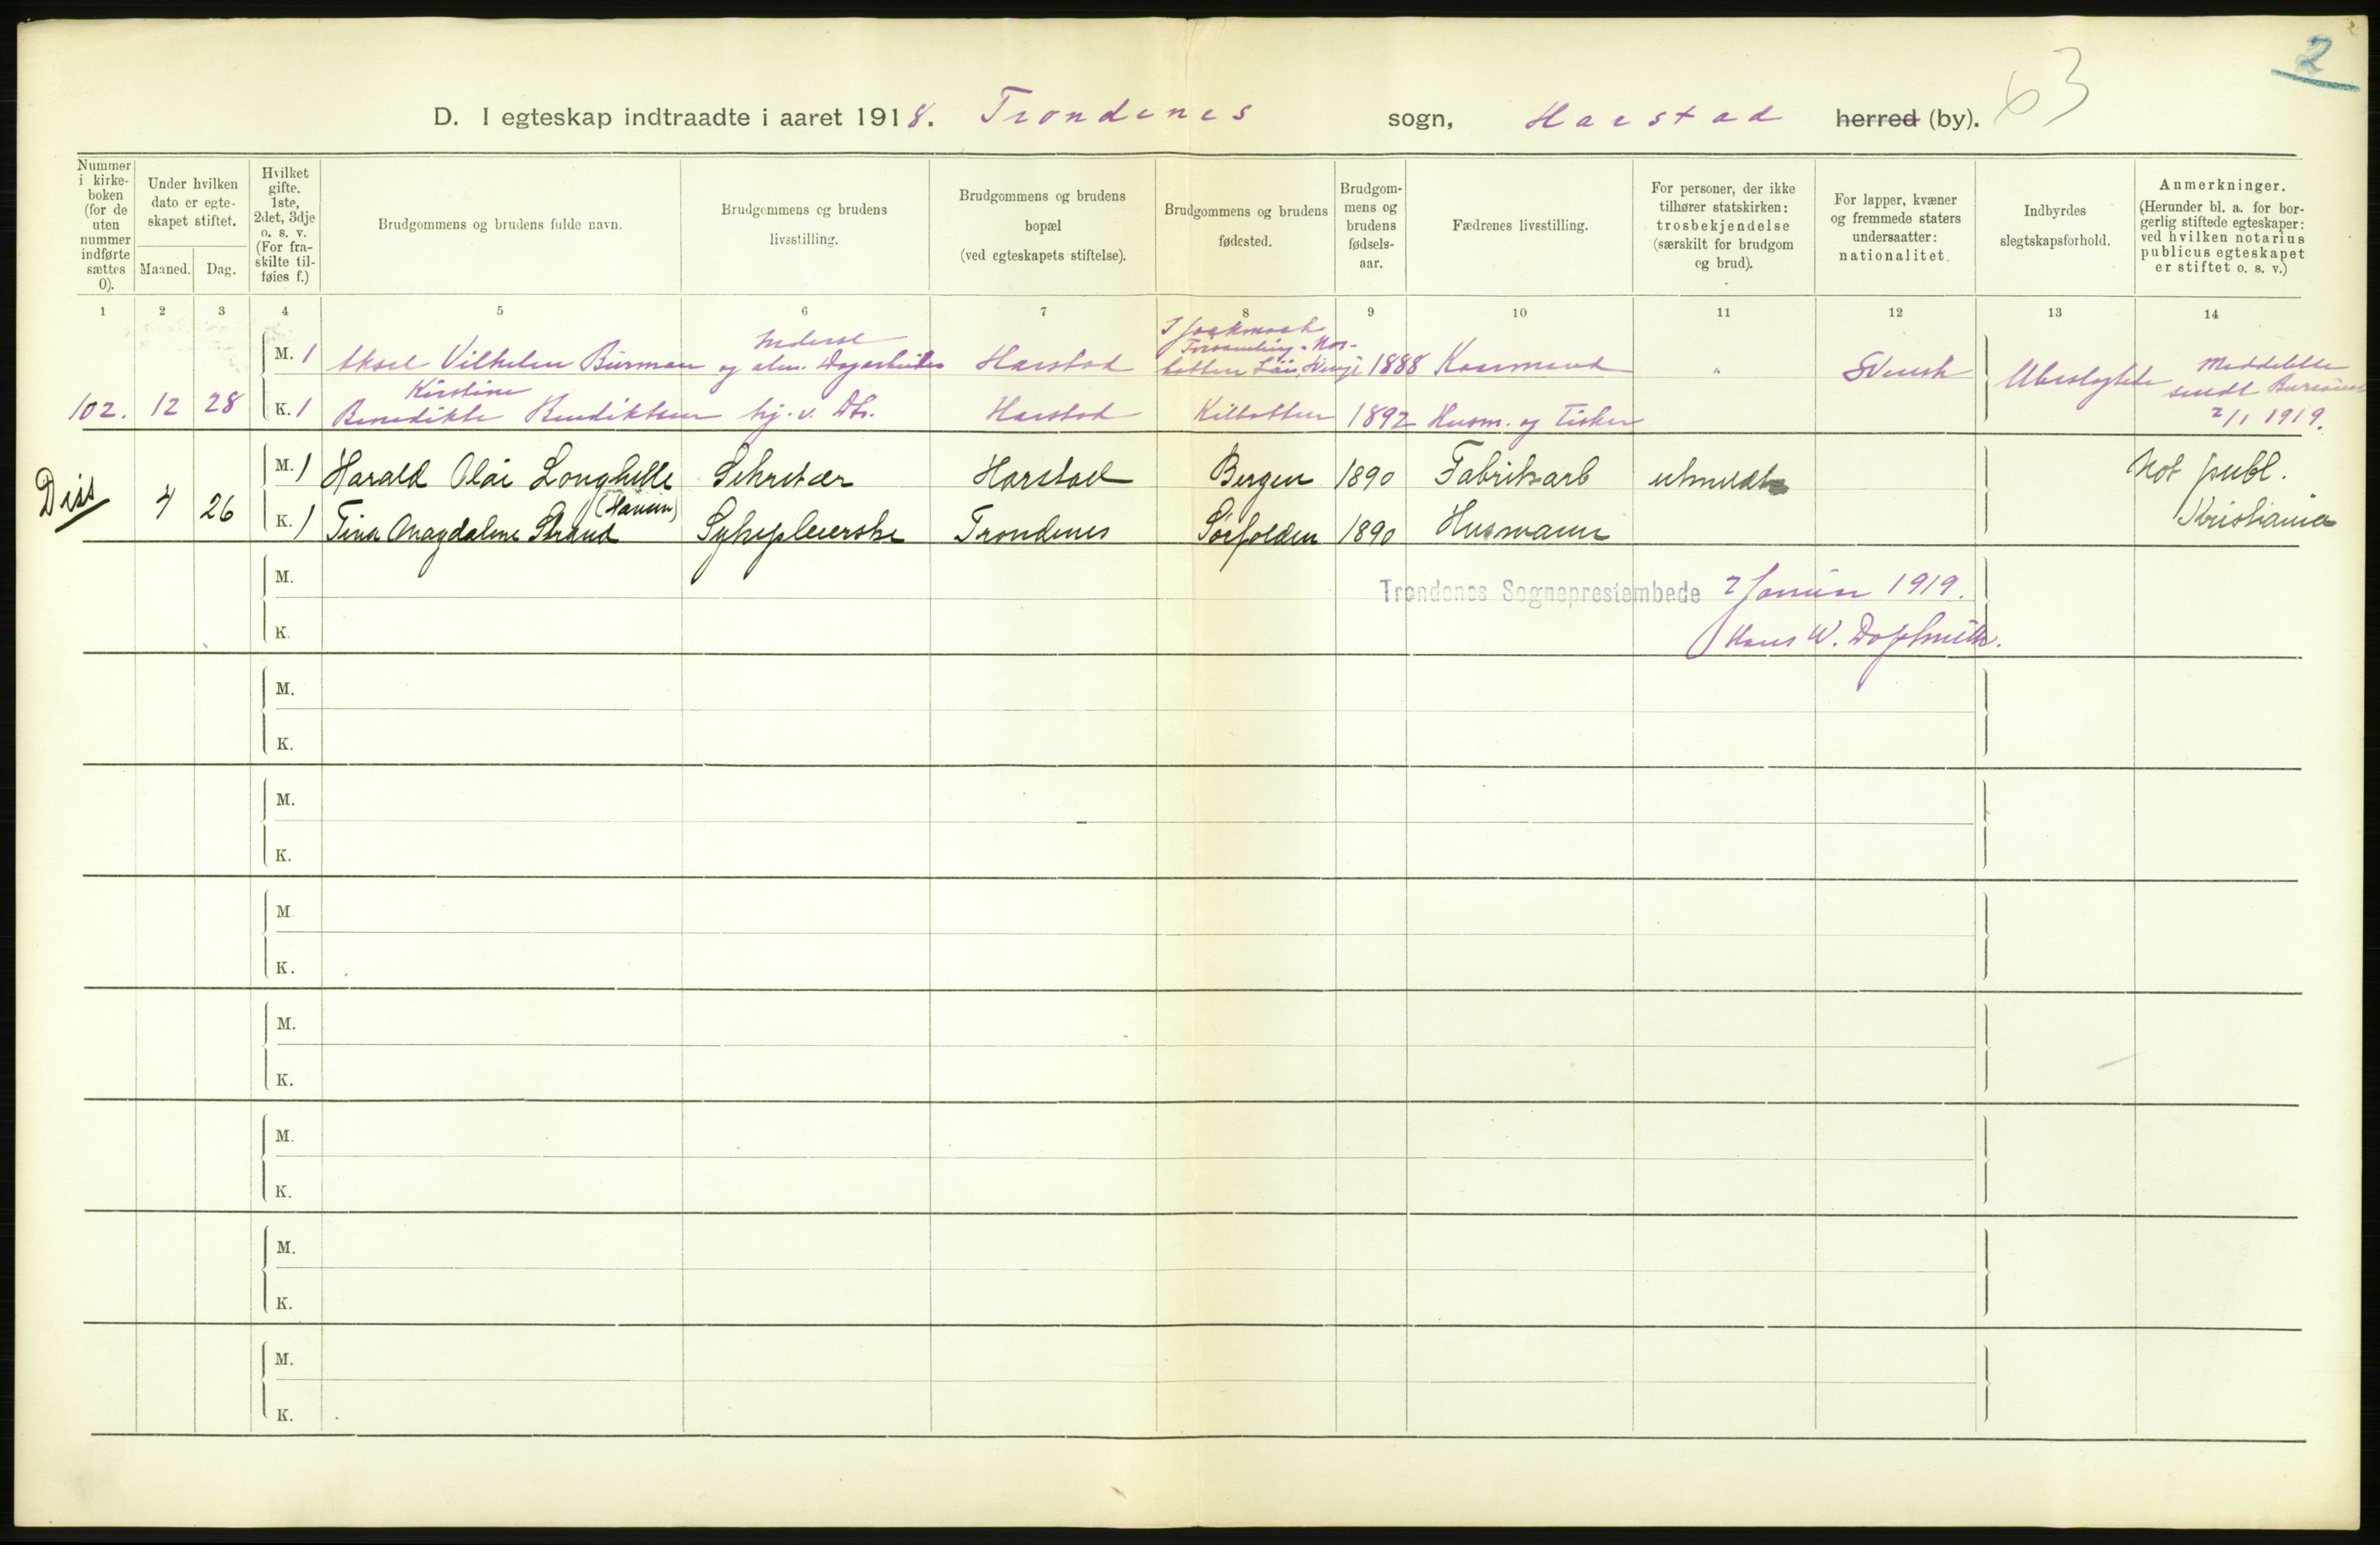 2
63
D. I egteskap indtraadte i aaret 1918. Trondenes sogn, Harstad herred (by).
Nummer i kirke-boken (for de uten nummer indførte sættes 0).
Under hvilken dato er egte-skapet stiftet.
Maaned.
Dag.
Hvilket gifte. 1ste, 2det, 3dje o. s. v. (For fra-skilte til-føies f.)
Brudgommens og brudens fulde navn.
Brudgommens og brudens livsstilling.
Brudgommens og brudens bopæl (ved egteskapets stiftelse).
Brudgommens og brudens fødested.
Brudgom-mens og brudens fødsels-aar.
Fædrenes livsstilling.
For personer, der ikke tilhører statskirken: trosbekjendelse (særskilt for brudgom og brud).
For lapper, kvæner og fremmede staters undersaatter: nationalitet.
Indbyrdes slegtskapsforhold.
Anmerkninger. (Herunder bl. a. for bor-gerlig stiftede egteskaper: ved hvilken notarius publicus egteskapet er stiftet o. s. v.)
1 2 3 4 5 6 7 8 9 10 11 12 13 14
M. 1 Aksel Vilhelm Burman og alm. Dagarbeider Harstad 1888 " Svensk Ubeslegtede Meddelelse sendt
102. 12 28 K. 1 Benedikte Kirstine Bendiktsen hj. v. Harstad Kilbotten 1892 Husm. og Fisker 2/1 1919.
M. 1 Harald Olai Langhelle Sekretær Harstad Bergen 1890 Fabrikarb utmeldt Not publ.
Diss 4 26 K. 1 Tina Magdalene Strand (Hansen) Sykepleierske Trondenes Sørfolden 1890 Husmann Kristiania
M.
Trondenes Sogneprestembede 2 Januar 1919.
K.
Hans W.
M.
K.
M.
K.
M.
K.
M.
K.
M.
K.
M.
K.
M.
K.